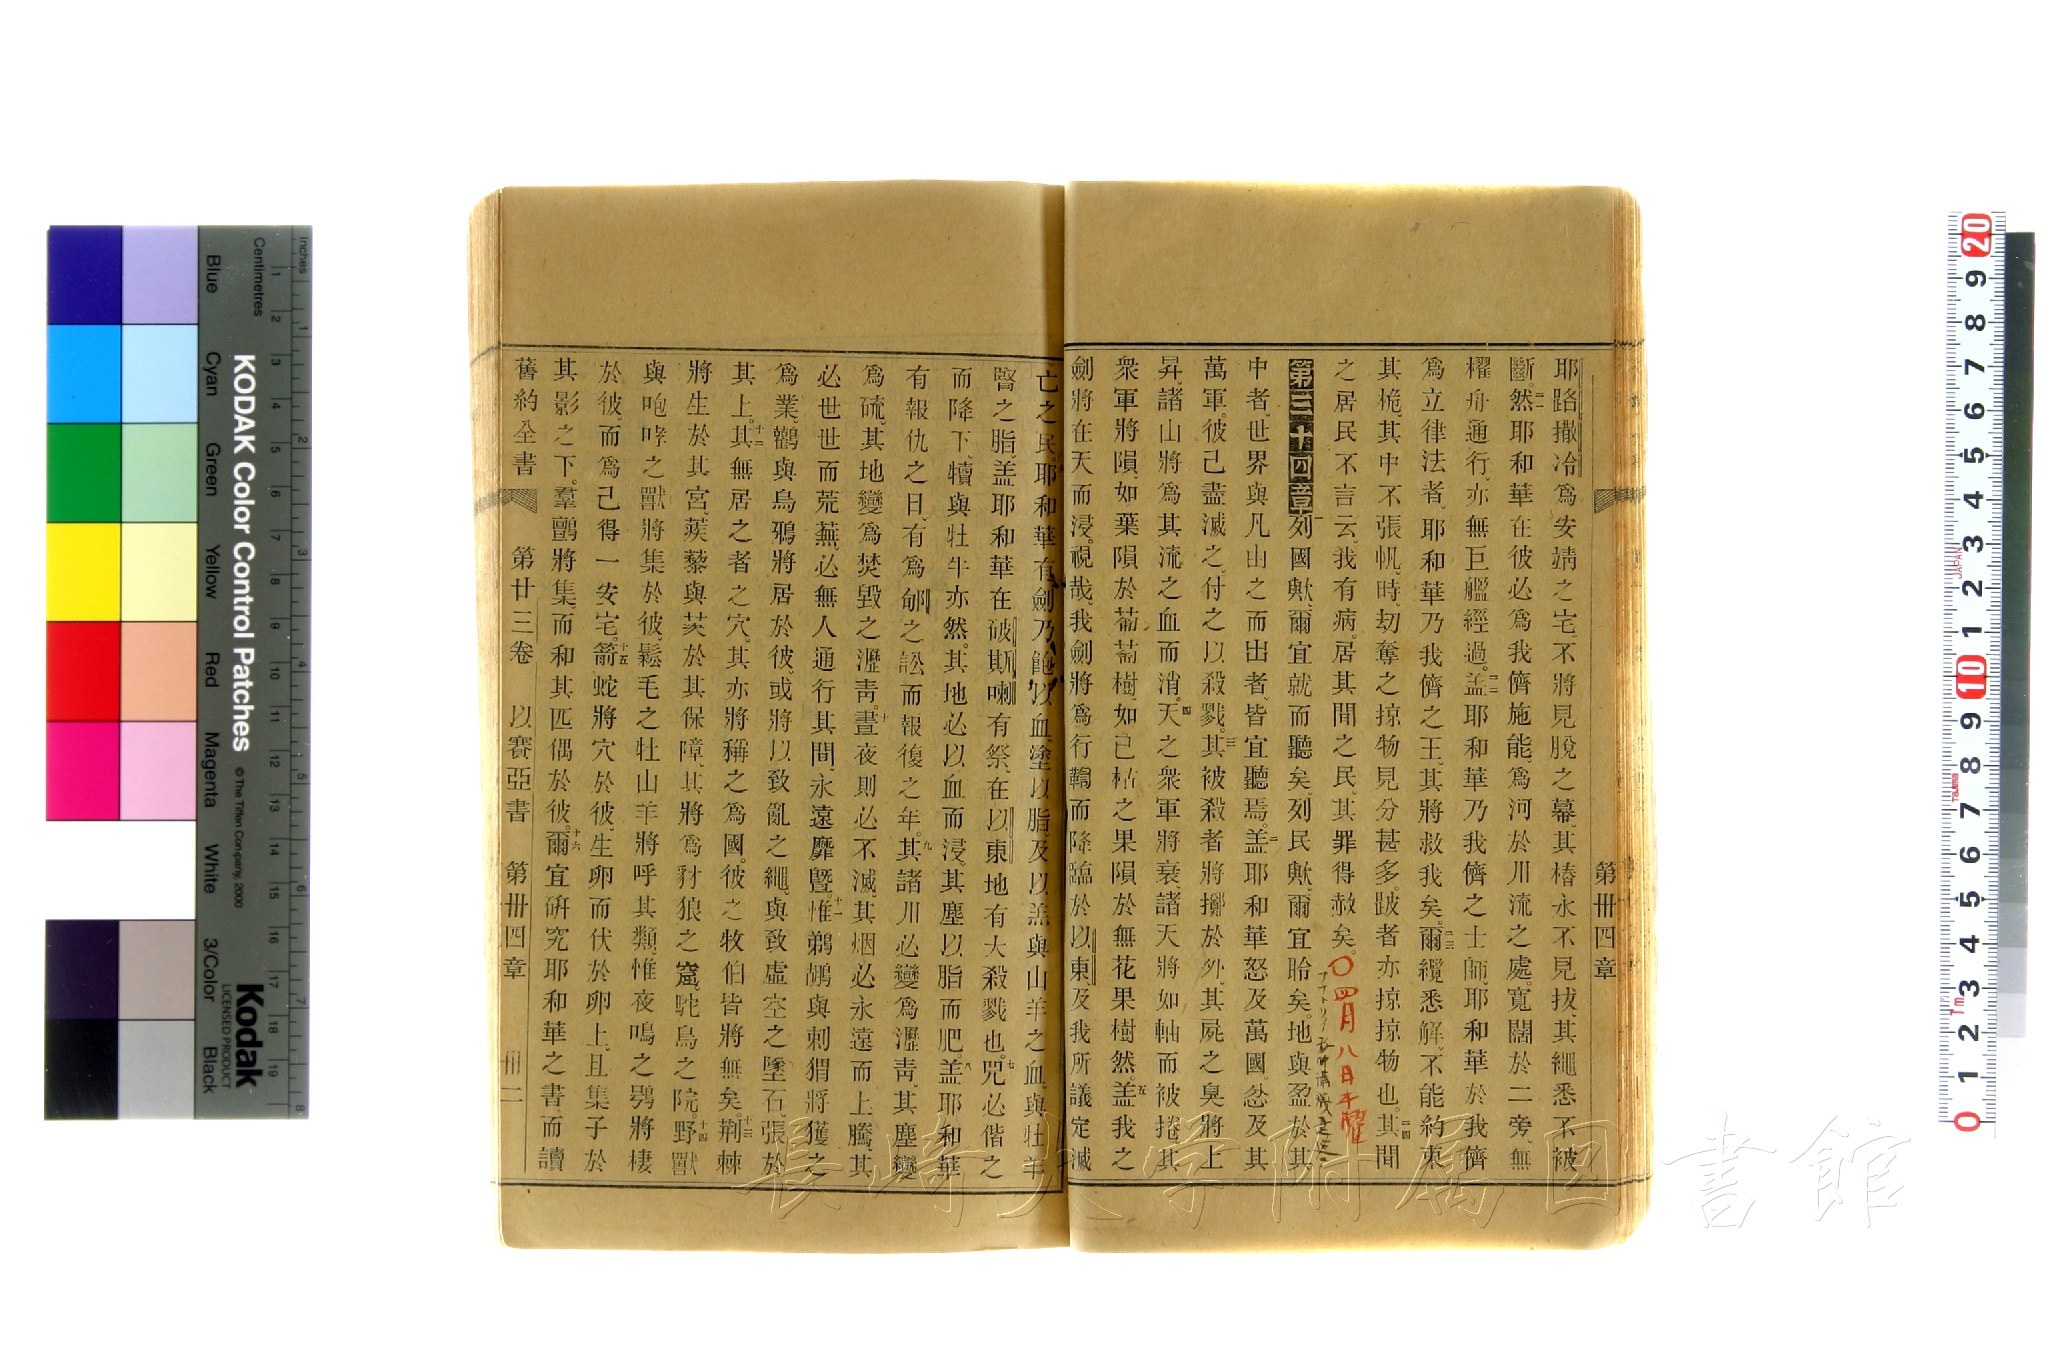 第卅四章
耶路撒冷爲安靖之宅、不將見脫之幕、其樁永不見拔、其繩悉不被
斷。二一然耶和華在彼必爲我儕施能、爲河於川流之處。寬闊於二旁、無
櫂舟通行、亦無巨艦經過。二二盖耶和華乃我儕之士師、耶和華於我儕
爲立律法者、耶和華乃我儕之王、其將救我矣。二三爾纜悉解、不能約束
其桅、其中不張帆、時、刧奪之掠物見分甚多。跛者亦掠掠物也。二四其間
之居民不言云、我有病。居其間之民、其罪得赦矣。〇四月八日木曜
第三十四章一列國歟、爾宜就而聽矣、列民歟、爾宜聆矣。地與盈於其
中者、世界與凡由之而出者、皆宜聽焉。二盖耶和華怒及萬國、忿及其
萬軍。彼已盡滅之、付之以殺戮。三其被殺者將擲於外、其屍之臭將上
昇、諸山將爲其流之血而消。四天之衆軍將衰、諸天將如軸而被捲、其
衆軍將隕、如葉隕於葡萄樹、如已枯之果隕於無花果樹然。五盖我之
劍將在天而浸。視哉、我劍將爲行鞫而降臨於以東、及我所議定滅
亡之民。六耶和華有劍、乃飽以血、塗以脂、及以羔與山羊之血、與牡羊
腎之脂、盖耶和華在破斯喇有祭、在以東地有大殺戮也。七兕必偕之
而降下、犢與牡牛亦然。其地必以血而浸、其塵以脂而肥。八盖耶和華
有報仇之日、有爲郇之訟而報復之年。九其諸川必變爲瀝青、其塵變
爲硫、其地變爲焚毀之瀝青。十晝夜則必不滅、其烟必永遠而上騰、其
必世世而荒蕪、必無人通行其間、永遠靡曁。十一惟鵜鶘與刺猬將獲之
爲業、鸛與烏鴉將居於彼、或將以致亂之繩、與致虛空之墜石、張於
其上。十二其無居之者之穴、其亦將稱之爲國。彼之牧伯皆將無矣。十三荆棘
將生於其宮、蒺藜與芺於其保障、其將爲豺狼之窟、駝鳥之院。十四野獸
與咆哮之獸將集於彼。鬆毛之牡山羊將呼其類、惟夜鳴之鴞將棲
於彼、而爲己得一安宅。十五箭蛇將穴於彼、生卵而伏於卵上、且集子於
其影之下。羣鸇將集、而和其匹偶於彼。十六爾宜硏究耶和華之書而讀
舊約全書 第廿三卷 以賽亞書 第卅四章 卅二
長崎大学附属図書館
KODAK Color Control Patches
© The Tiffen Company, 2000
Kodak
LICENSED PRODUCT
Inches
Centimetres
Blue
Cyan
Green
Yellow
Red
Magenta
White
3/Color
Black
JAPAN
Tajima
1m